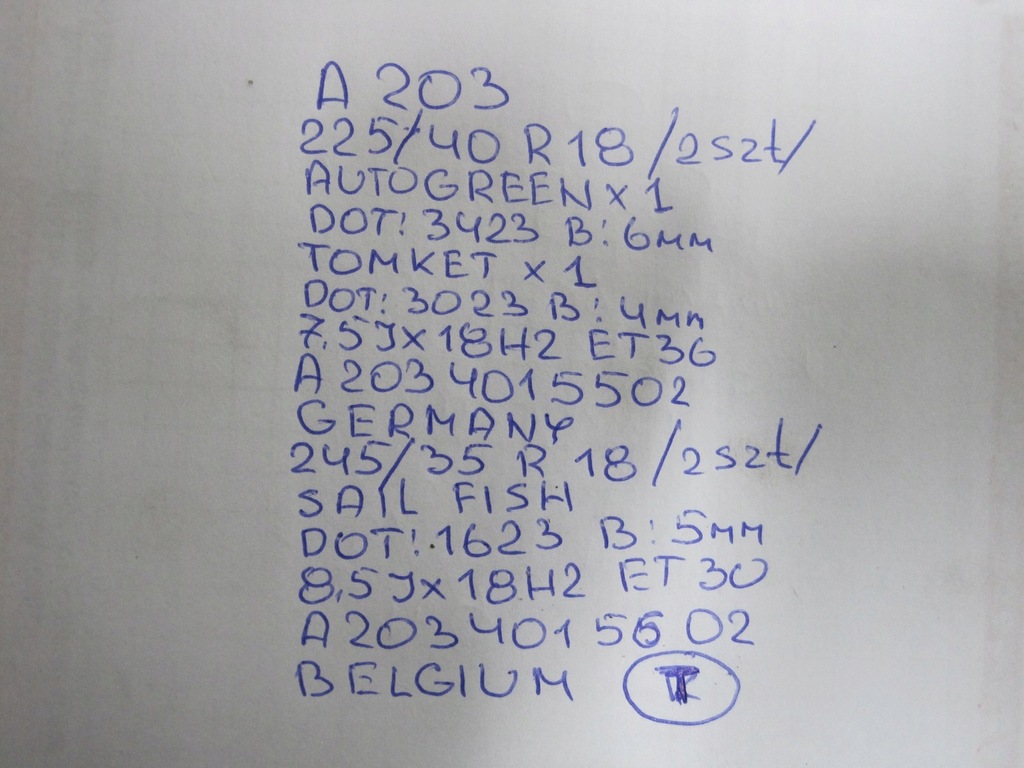 A 203
225/40 R 18 /2szt/
AUTOGREEN x 1
DOT: 3423 B: 6мм
TOMKET x 1
DOT: 3023 B: 4мм
7.5Jx18H2 ET36
A 203 401 5502
GERMANY
245/35 R 18 /2szt/
SAIL FISH
DOT: 1623 B: 5мм
8,5Jx18H2 ET 30
A 203 401 56 02
BELGIUM